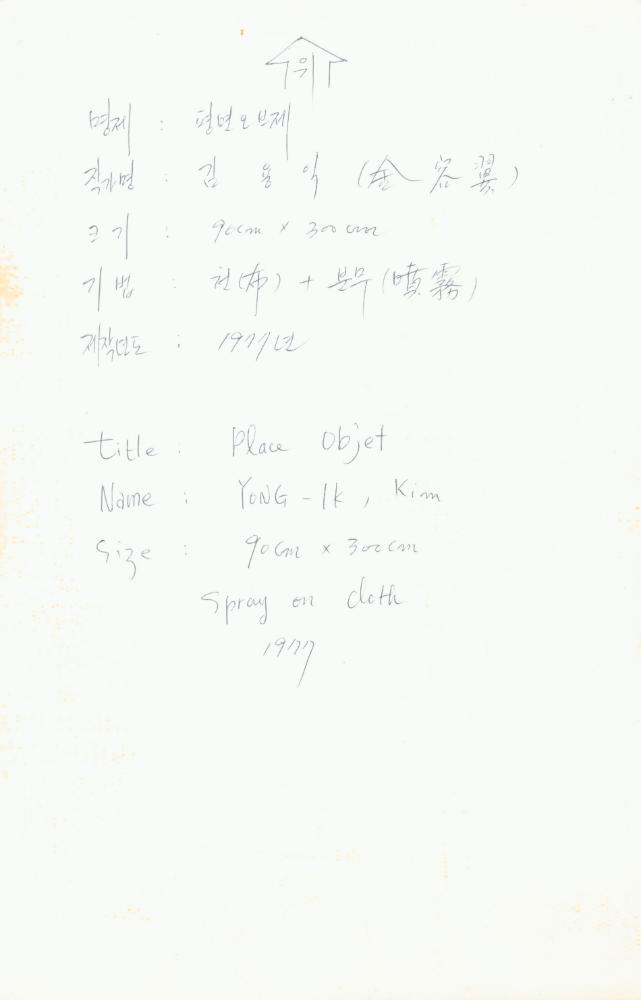 위
명제 : 평면오브제
작가명 : 김 용 익 (金 容 翼)
크기 : 90cm × 300cm
기법 : 천(布) + 분무(噴霧)
제작년도 : 1977년
title : Place Objet
Name : YONG-Ik, Kim
Size : 90cm × 300cm
Spray on cloth
1977